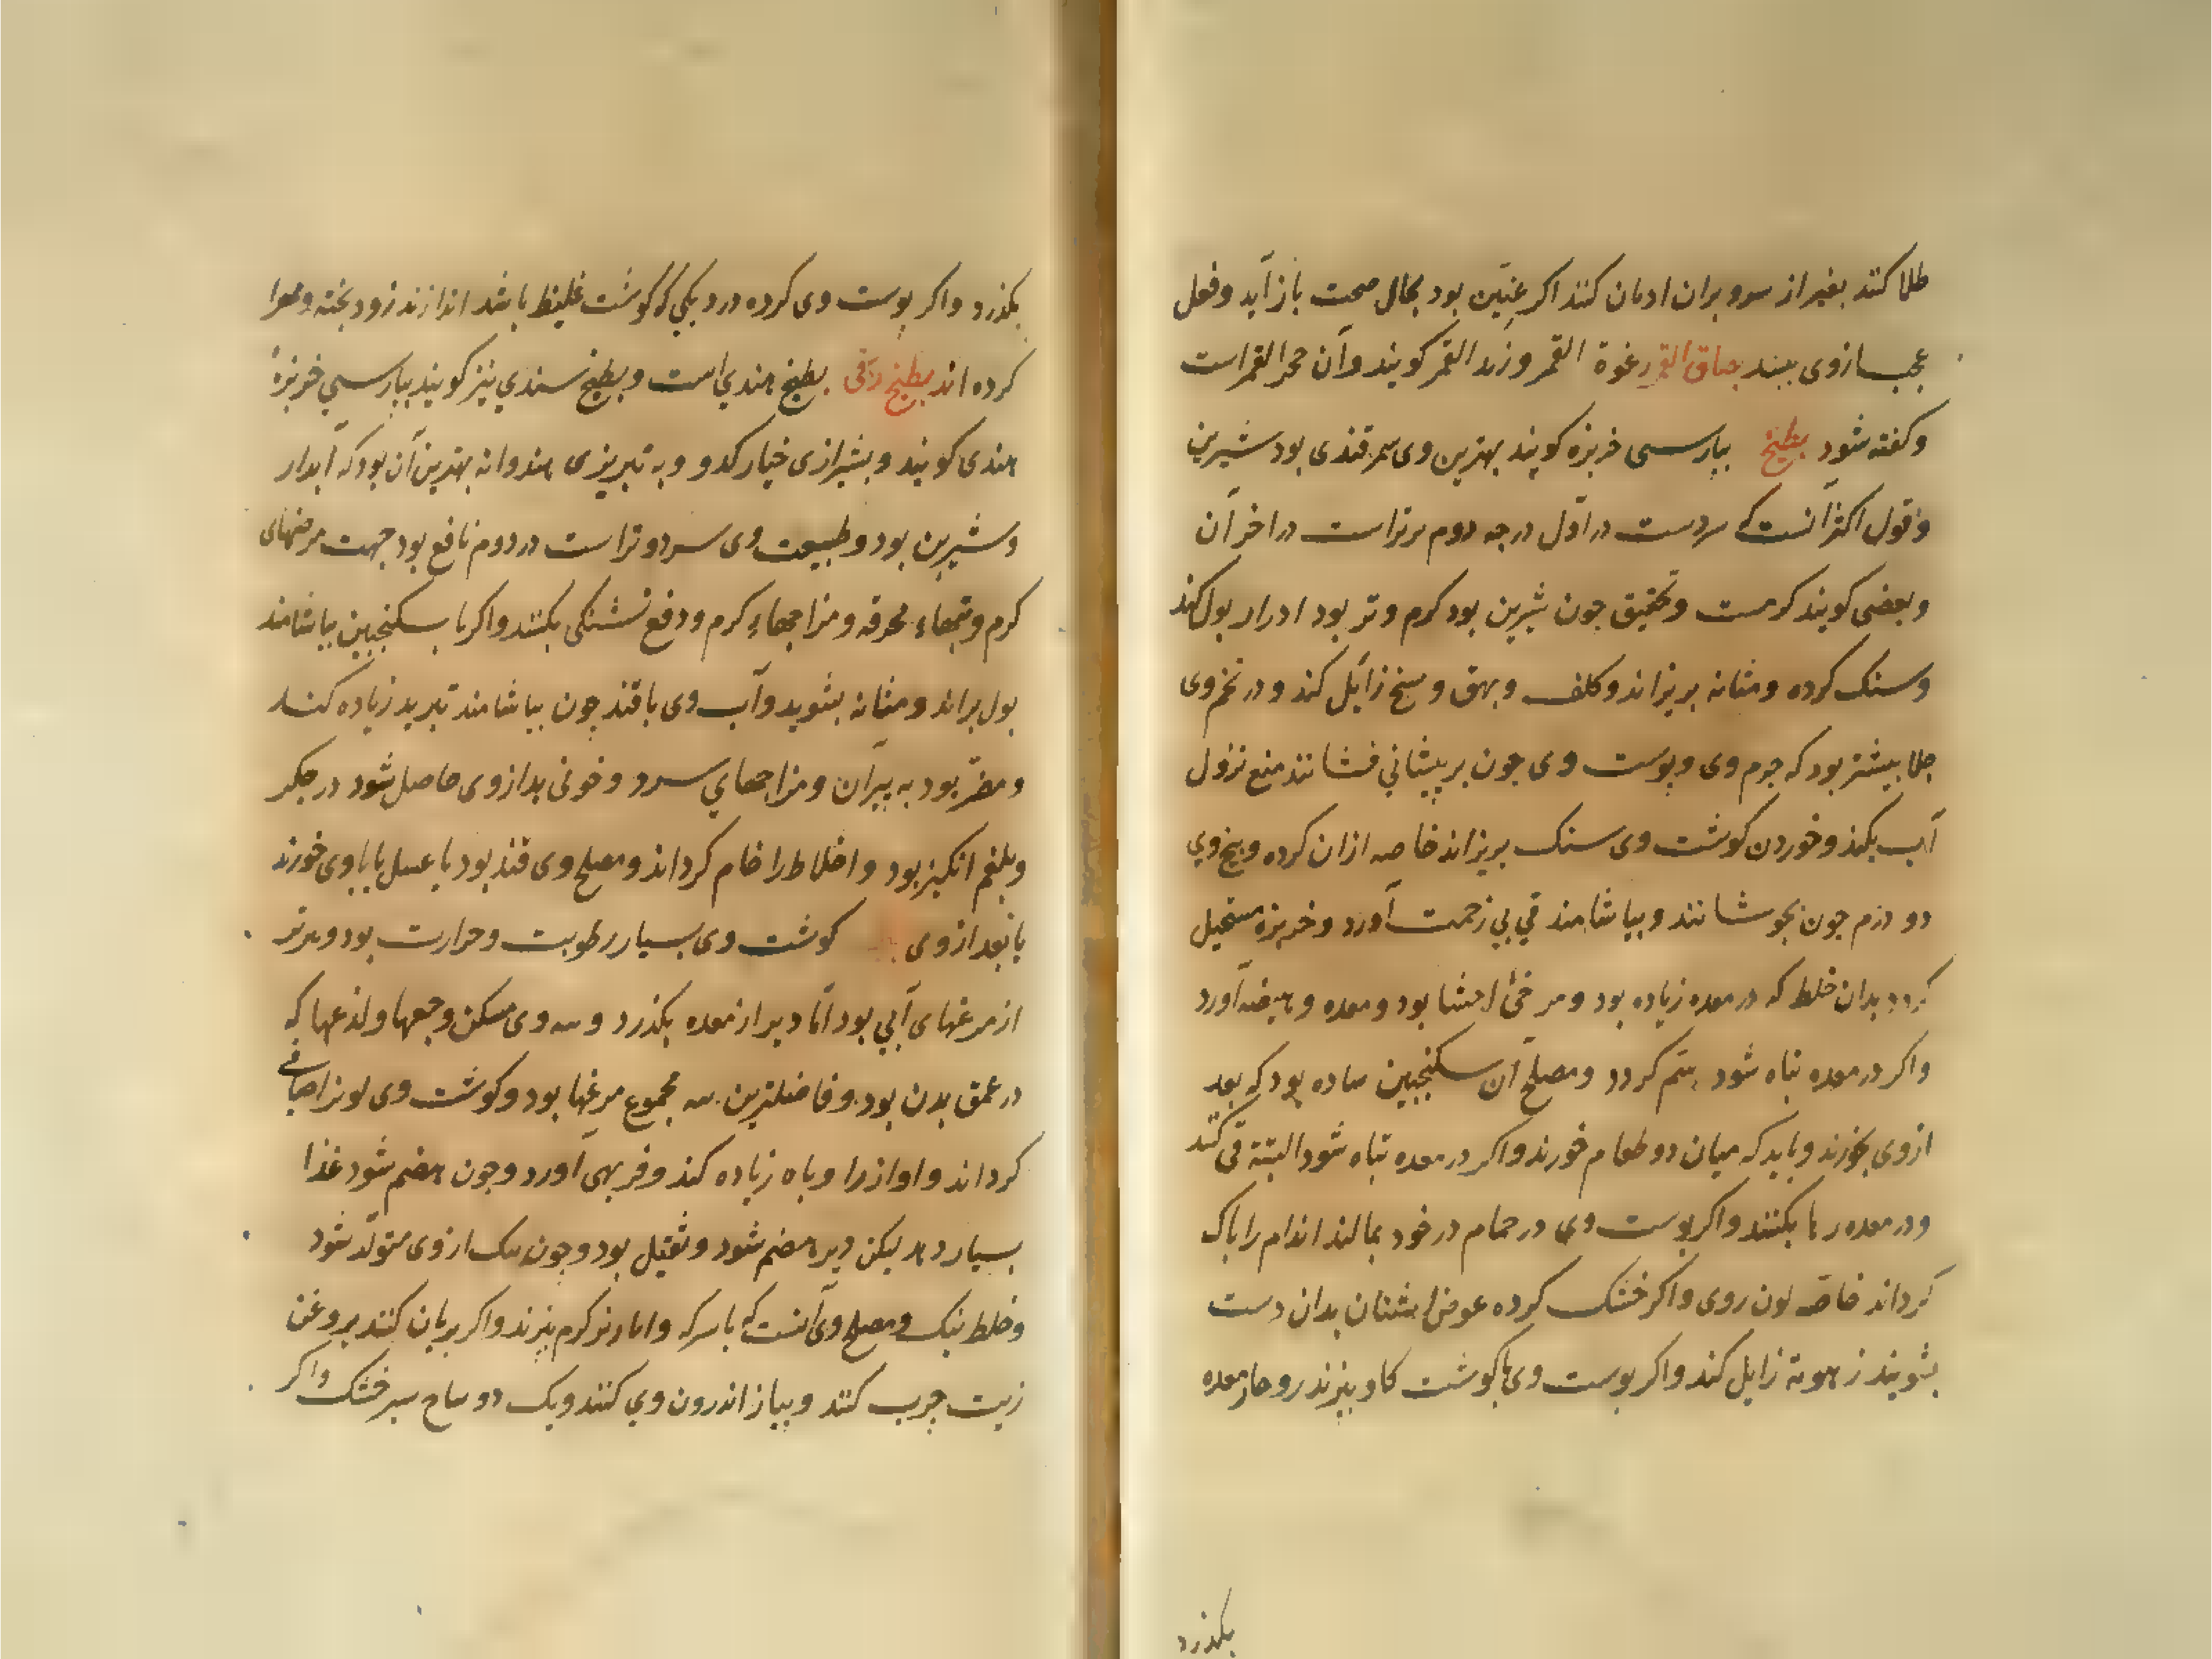 طلا کنند بغیر از سرو بران ادمان کنند اکر عنّین بود بحال صحت باز آید و فعل
عجب ازوی بیند بصاق القمر رغوة القمر و زبد القمر کویند و آن حجر القمر است
و کفته شود بطیخ بپارسی خربزه کویند بهترین وی سمرقندی بود شیرین
و قول اکثر آنست که سردست در اوّل درجه دوم و تر است در آخر آن
و بعضی کویند کرمست و تحقیق جون شیرین بود کرم و تر بود ادرار بول کند
و سنک کرده و مثانه بریزاند و کلف و بهق و وسخ زایل کند و در تخم وی
جلا بیشتر بود که جرم وی و پوست وی جون بر پیشانی فشانند منع نزول
آب بکند و خوردن کوشت وی سنک بریزاند خاصه ازان کرده و بیخ وی
دو درم جون بجوشانند و بیاشامند قی بی زحمت آورد و خربزه مستحیل
کردد بدان خلط که در معده زیاده بود و مرخی احشا بود و معده و هیضه آورد
و اکر در معده تباه شود بسّم کردد و مصلح آن سکنجبین ساده بود که بعد
ازوی بخورند و باید که میان دو طعام خورند و اکر در معده تباه شود البته قی کنند
و در معده رها نکنند و اکر پوست وی در حمام در خود بمالند اندام را پاک
کرداند خاصّه لون روی و اکر خشک کرده عوض اشنان بدان دست
بشویند زهومة زایل کند و اکر پوست وی با کوشت کاو بپزند زود از معده
بکذرد
بکذرد و اکر پوست وی کرده در دیکی که کوشت غلیظ باشد اندازند زود پخته و مهرا
کرده اند بطیخ رقی بطیخ هندی است و بطیخ سندی نیز کویند بپارسی خربزهٔ
هندی کویند و بشیرازی خیار کدو و به تبریزی هندوانه بهترین آن بود که آبدار
و شیرین بود و طبیعت وی سرد و تر است در دوم نافع بود جهت مرضهای
کرم و تبهاء محرقه و مزاجهاء کرم و دفع تشنکی بکنند و اکر با سکنجبین بیاشامند
بول براند و مثانه بشوید و آب وی با قند جون بیاشامند تبرید زیاده کند
و مضرّ بود به پیران و مزاجهای سرد و خونی بد ازوی حاصل شود در جکر
و بلغم انکیز بود و اخلاط را خام کرداند و مصلح وی قند بود یا عسل یا با وی خورند
یا بعد ازوی کوشت وی بسیار رطوبت و حرارت بود و بدتر
از مرغهای آبی بود امّا دیر از معده بکذرد و پیه وی مسکن وجعها و لذعها که
در عمق بدن بود و فاضلترین پیه مجموع مرغها بود و کوشت وی لون را صافی
کرداند و اواز را و باه زیاده کند و فربهی آورد و جون هضم شود غذا
بسیار دهد لیکن دیر هضم شود و ثقیل بود و جون نیک ازوی متولّد شود
و خلط نیک و مصلح وی آنست که با سرکه و ابازیر کرم بپزند و اکر بریان کنند بروغن
زیت جرب کنند و پیاز اندرون وی کنند و یک دو شاخ سبر خشک و اکر